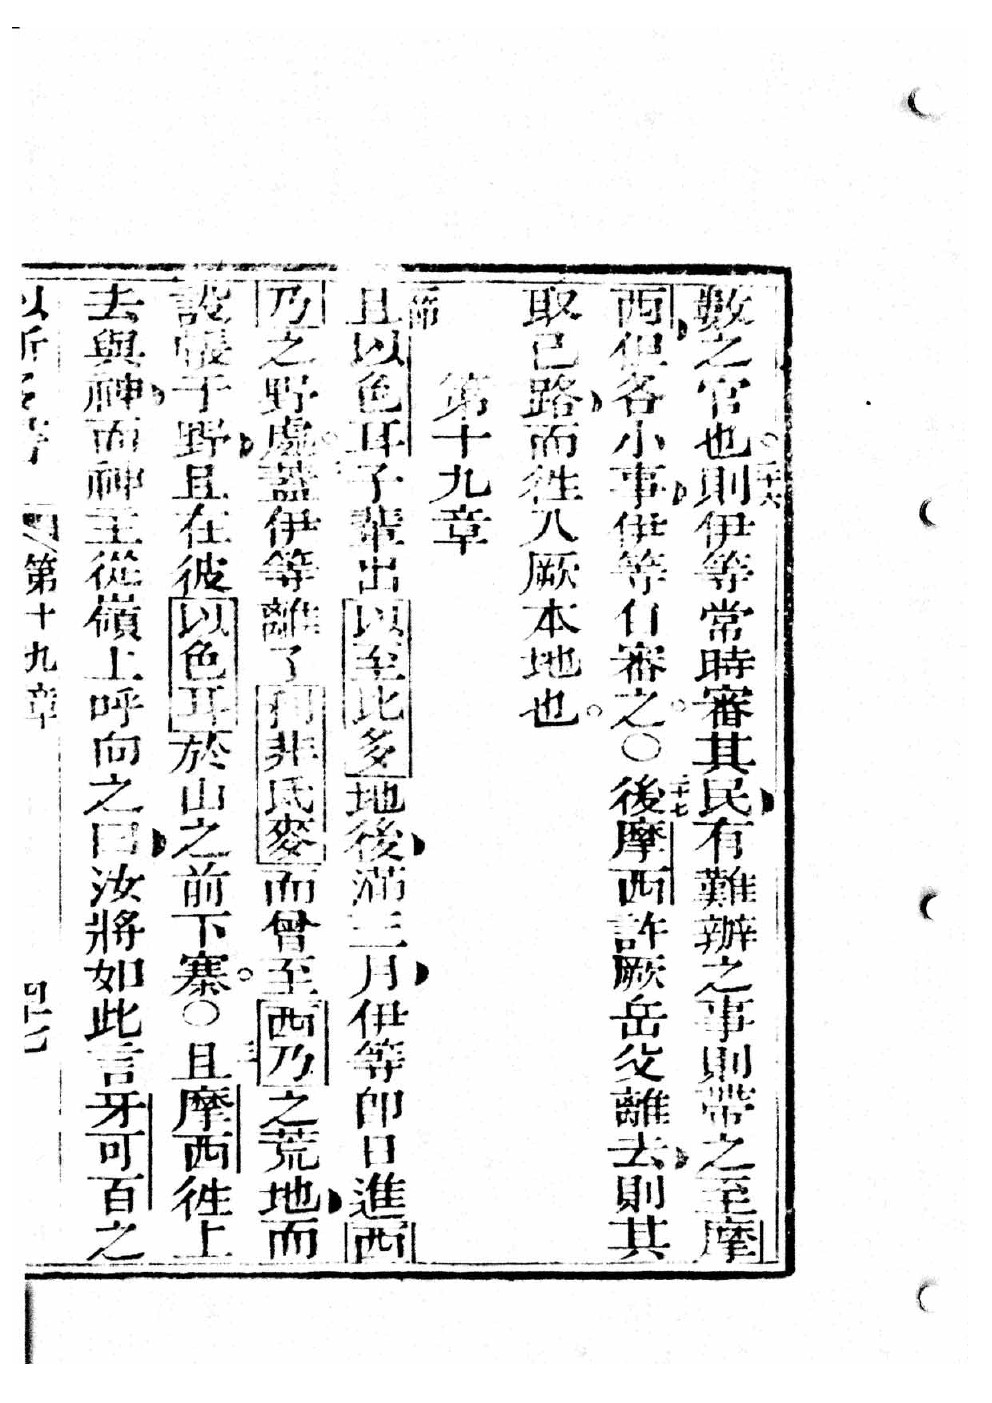 數之官也。二十六則伊等常時審其民有難辦之事則帶之至摩
西但各小事伊等自審之。○二十七後摩西許厥岳父離去則其
取己路而徃入厥本地也。
第十九章
節且以色耳子輩出以至比多地後滿三月伊等即日進西
乃之野處。蓋伊等離了利非氏麥而曾至西乃之荒地而
設帳于野且在彼以色耳於山之前下寨。○三且摩西徃上
去與神而神主從嶺上呼向之曰汝將如此言牙可百之
第十九章 四十七